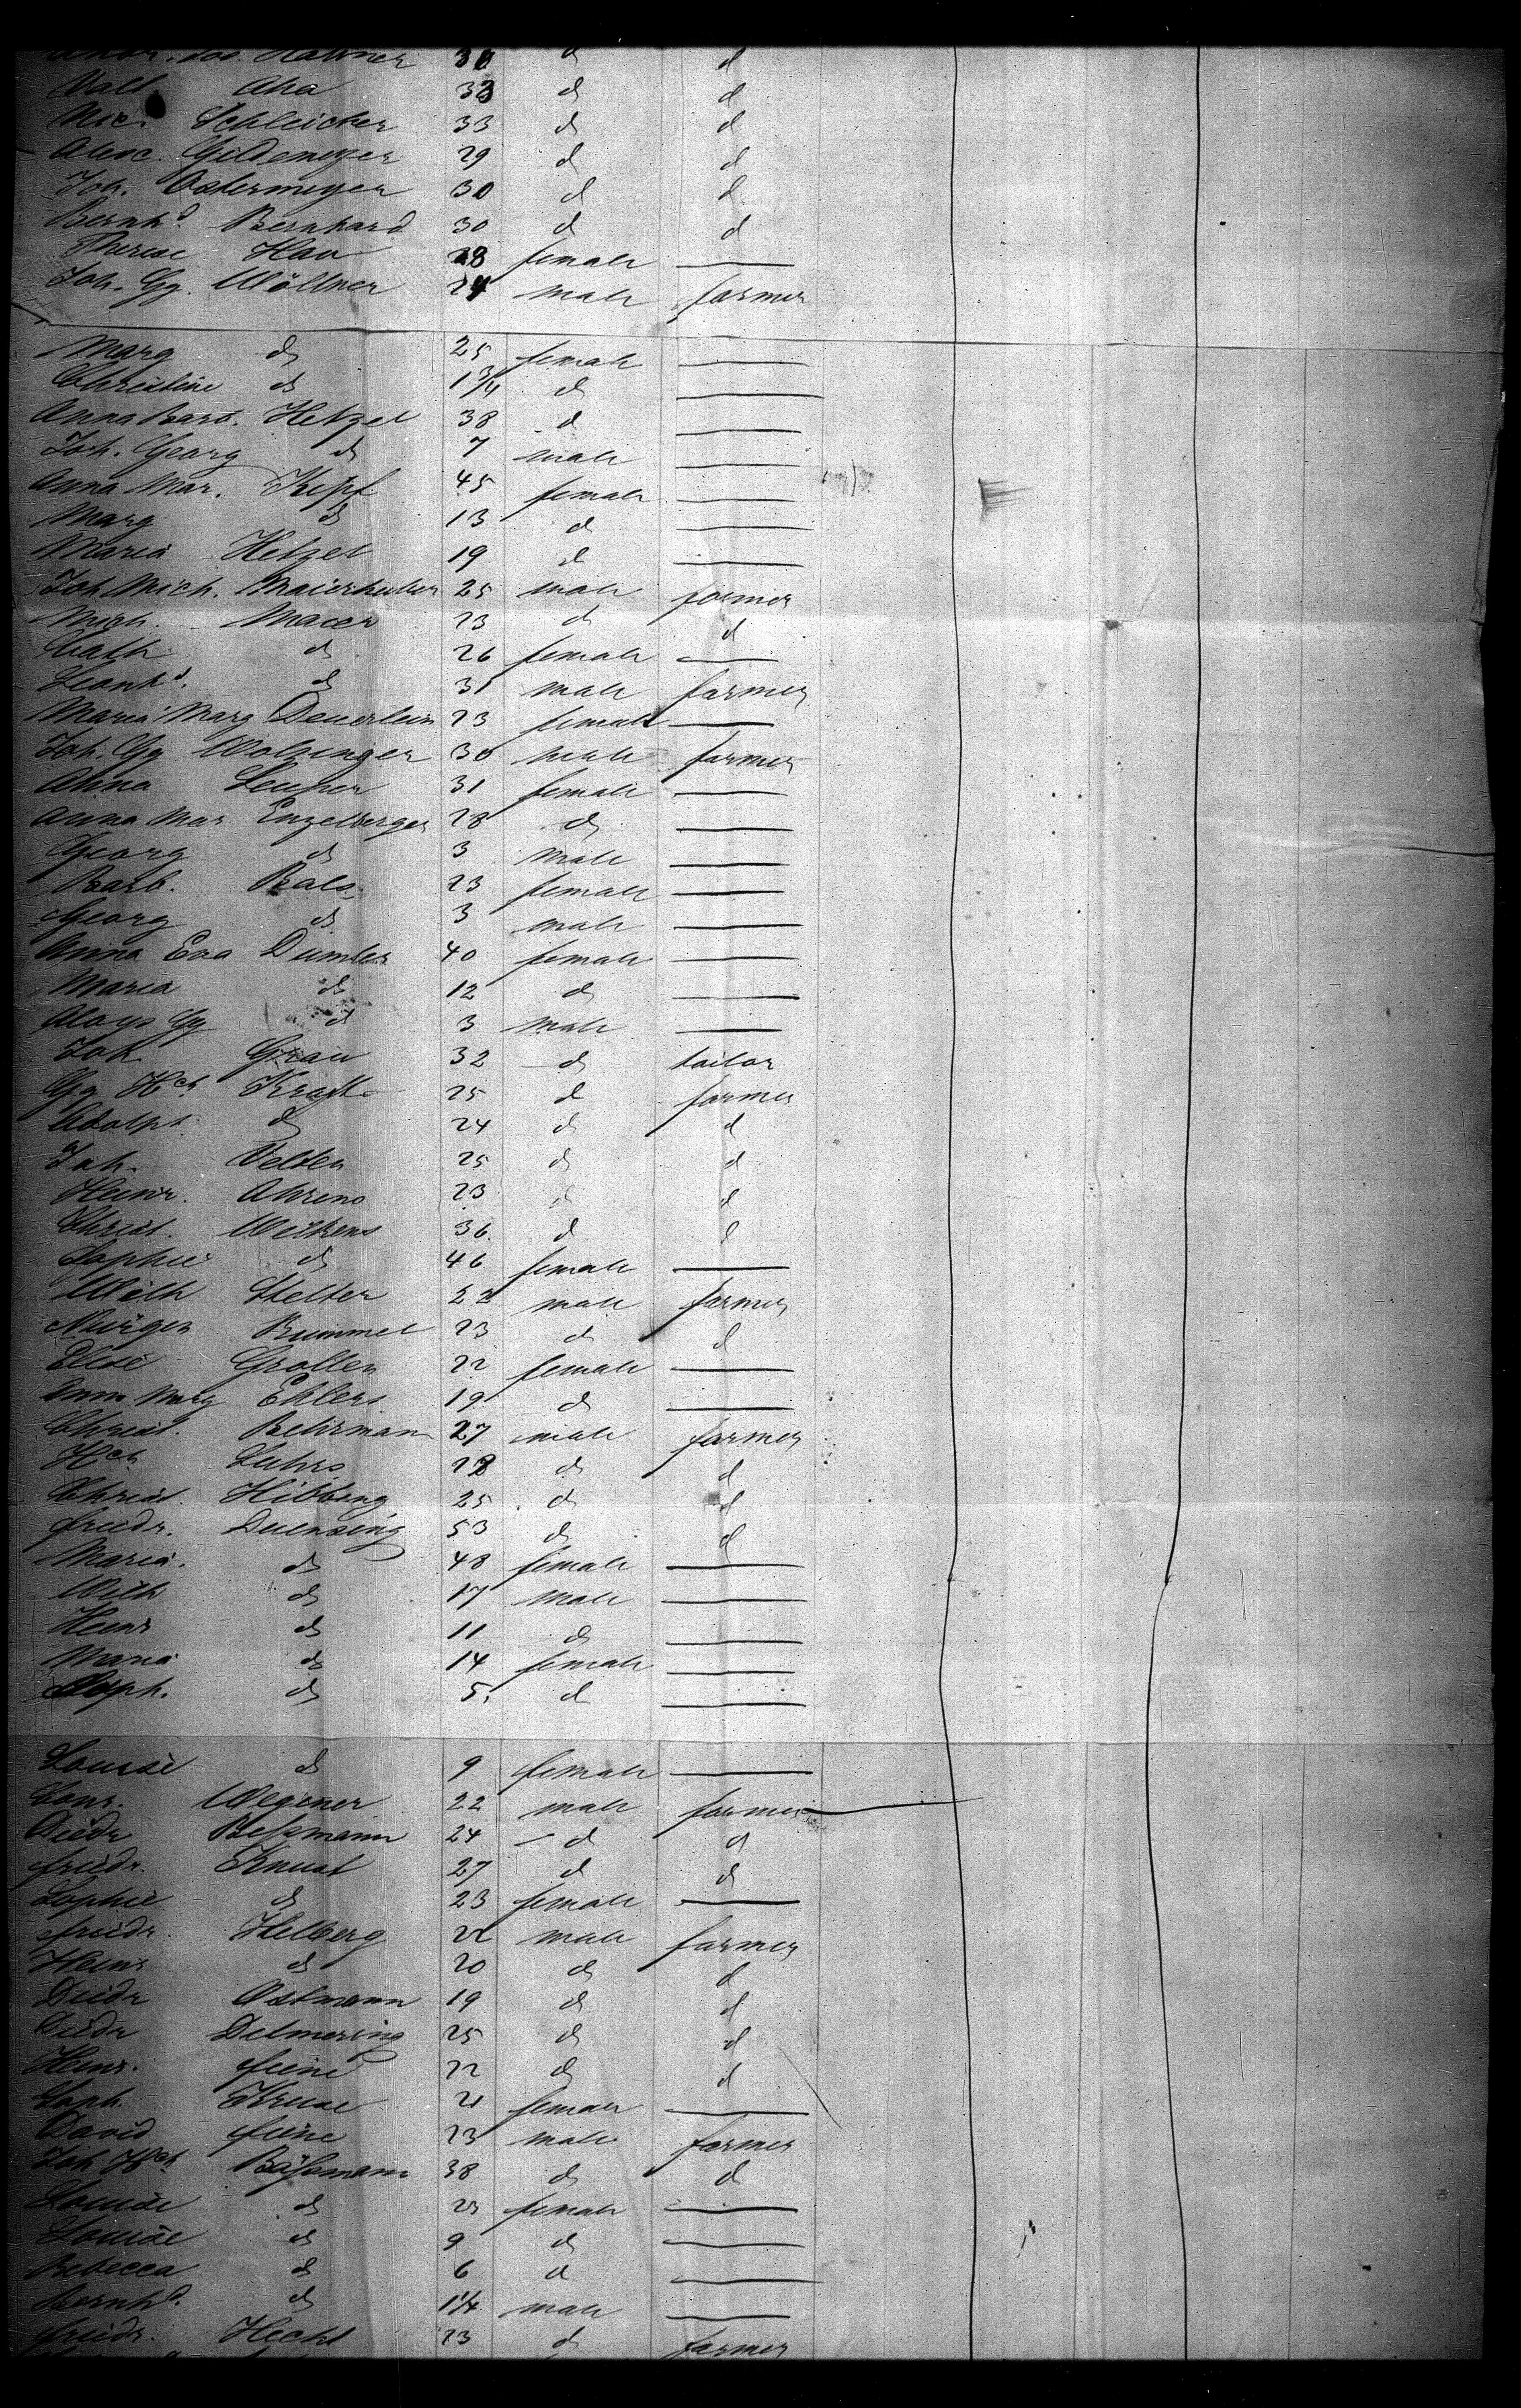 Hafner 30 d d
Valt. Aha 33 d d
Nic. Schleicher 33 d d
Alex. Gildemeyer 29 d d
Joh. Ostermeyer 30 d d
Bernhd. Bernhard 30 d d
Therese Hau 28 female —
Joh. Gg. Wöllner 24 male farmer
Marg d 25 female —
Christine d 1 3/4 d —
Anna Barb. Hetzel 38 d —
Joh. Georg d 7 male —
Anna Mar. Kipf 45 female —
Marg d 13 d —
Maria Hetzel 19 d —
Joh Mich. Maierhuber 25 male farmer
Mich. Maeer 23 d d
Cath d 26 female —
Leonhd. d 31 male farmer
Maria Marg Deuerlein 23 female —
Joh. Gg Wolsinger 30 male farmer
Anna Leuser 31 female —
Anna Mar Enzelberger 28 d —
Georg d 3 male —
Barb. Bals 23 female —
Georg d 3 male —
Anna Eva Dumler 40 female —
Maria d 12 d —
Aloys Gg d 3 male —
Joh Grau 32 d tailor
Gg Hch Kraft 25 d farmer
Adolph d 24 d d
Joh. Velten 25 d d
Heinr. Ahrens 23 d d
Christ. Wilkens 36 d d
Sophie d 46 female —
Wilh Stelter 22 male farmer
Jürgen Bummel 23 d d
Elise Grotten 22 female —
Anna Marg Ehlers 19 d —
Christ. Behrman 27 male farmer
Hch Luhrs 28 d d
Christ. Hibbing 25 d d
friedr. Duensing 53 d d
Maria. d 48 female —
Wilh d 17 male —
Heinr d 11 d —
Maria d 14 female —
Soph. d 5 d —
Louise d 9 female —
Conr. Wegener 22 male farmer
Diedr Bessmann 24 d d
friedr. Knust 27 d d
Sophie d 23 female —
friedr. Helberg 22 male farmer
Heinr d 20 d d
Diedr Ostmann 19 d d
Diedr Detmering 25 d d
Heinr. feine 22 d d
Soph. Kruse 21 female —
David feine 23 male farmer
Joh Hch Bössmann 38 d d
Louise d 23 female —
Louise d 9 d —
Rebecca d 6 d —
Bernhd. d 1 1/4 male —
friedr. Hecht 23 d farmer